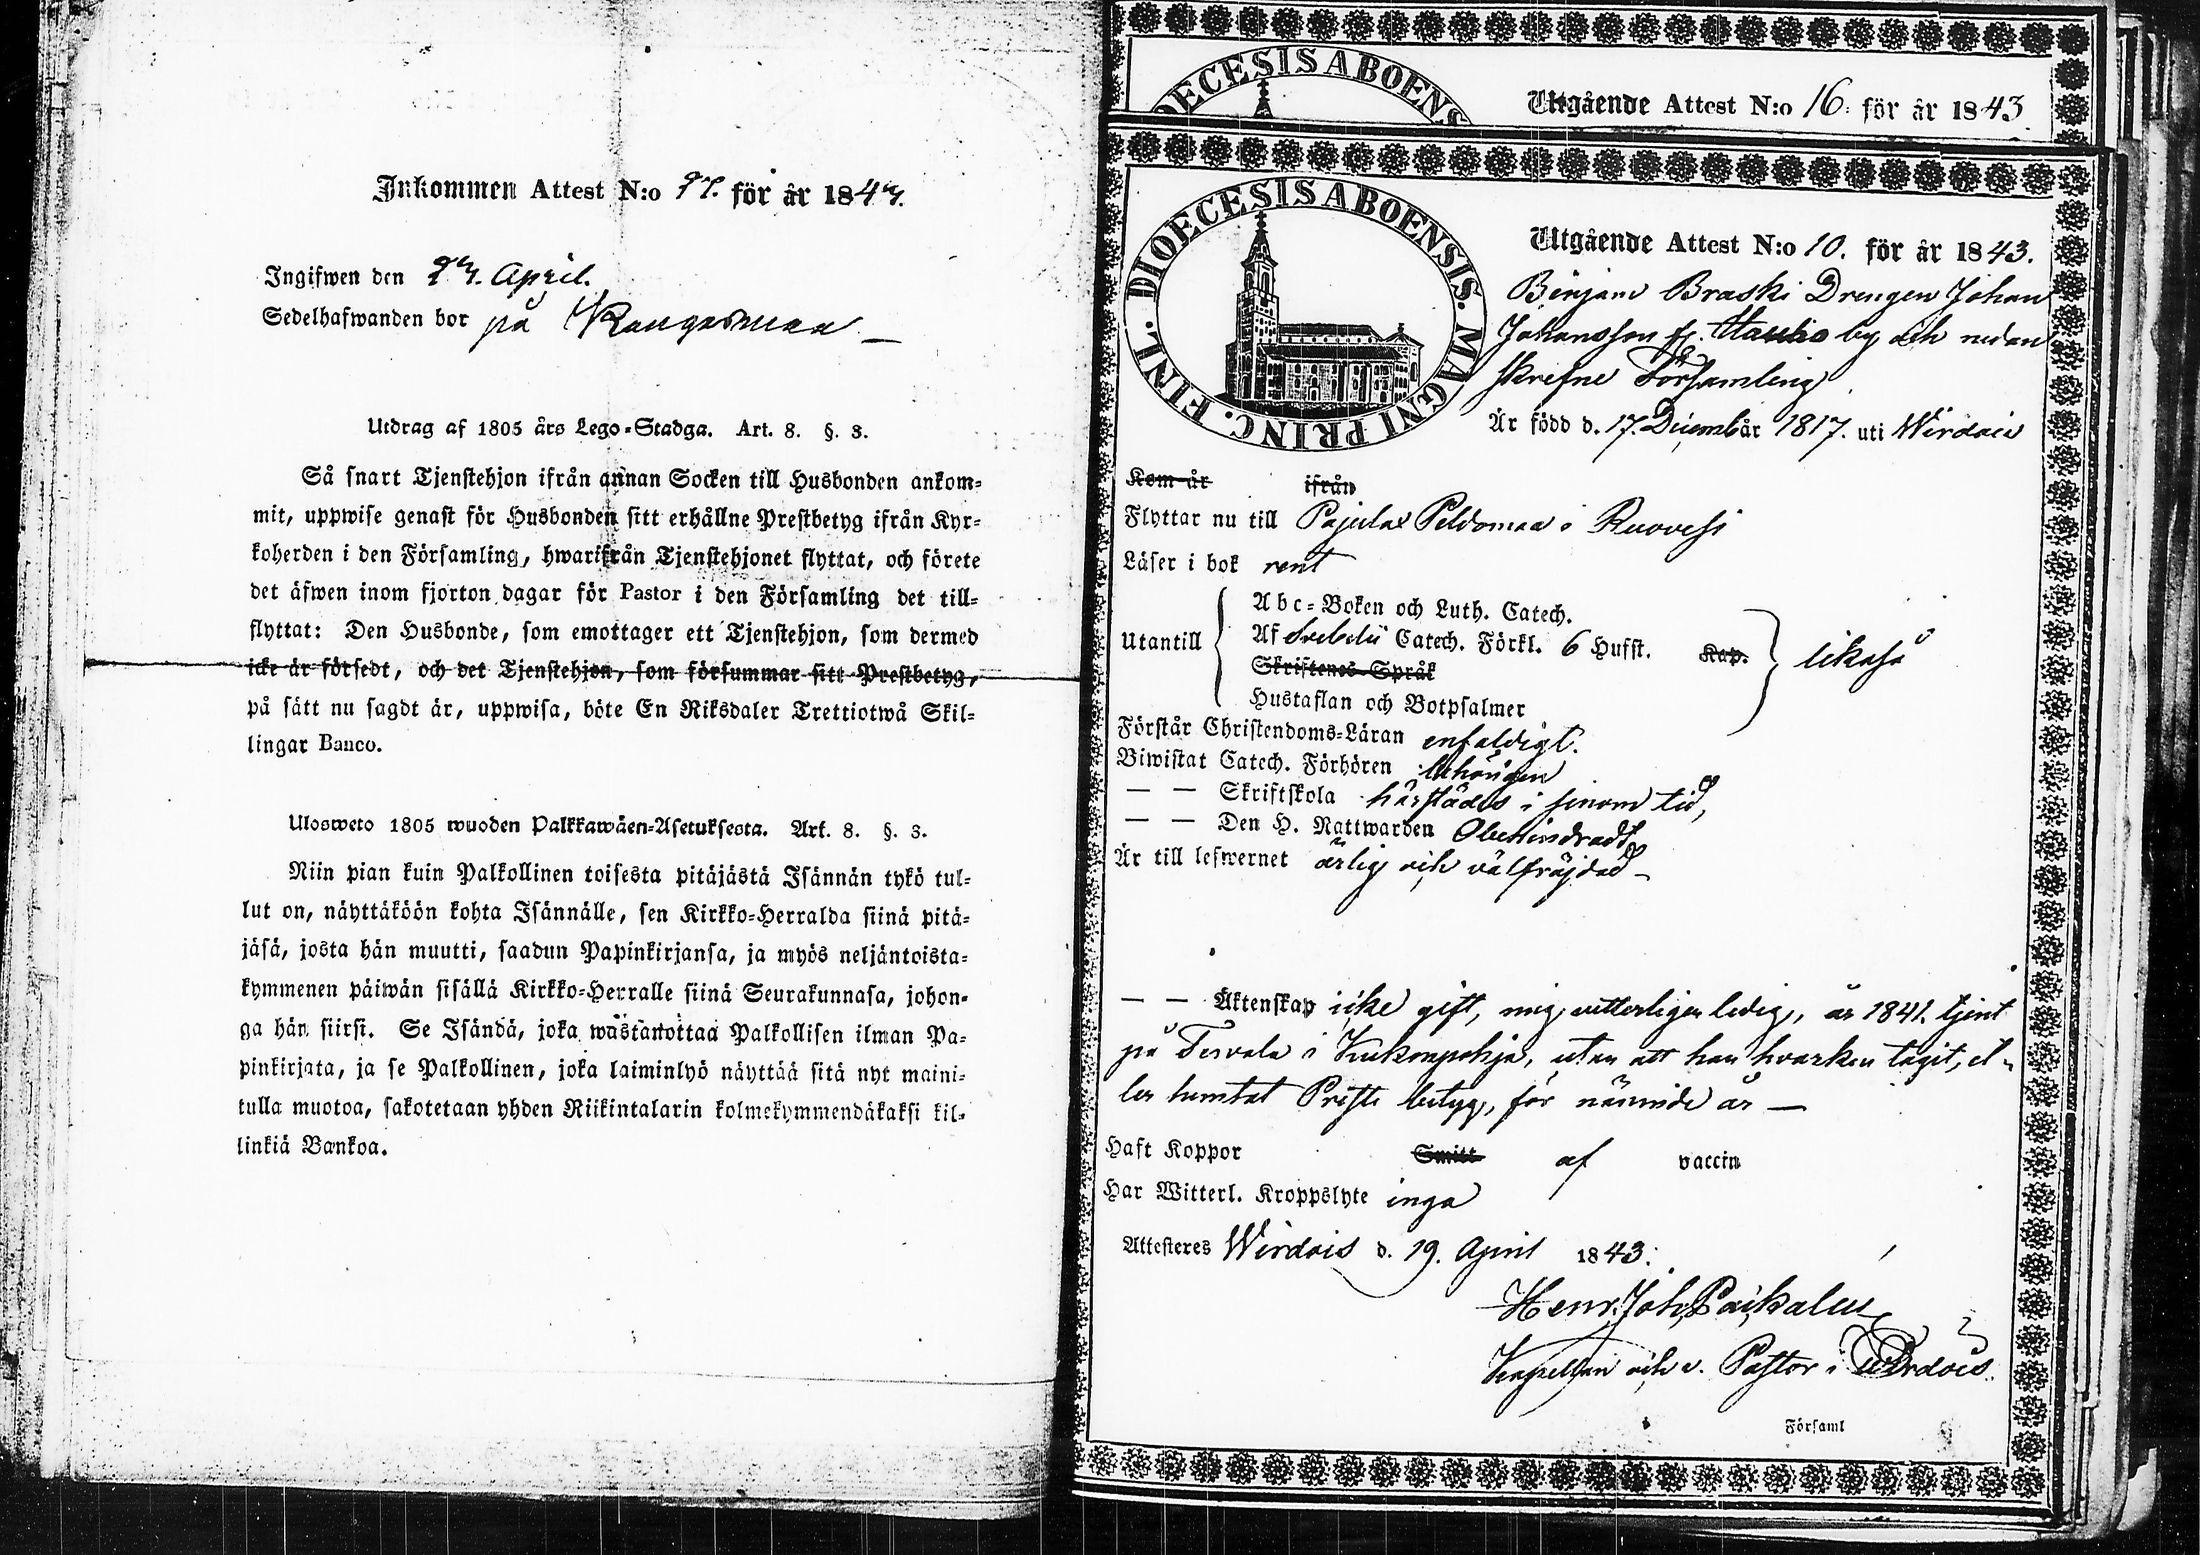 Inkommen Attest N:o 27. för år 1843.
Ingifwen den 23. April.
Sedelhafwanden bor på
Utdrag af 1805 års Lego-Stadga. Art. 8. §. 3.
Så snart Tjenstehjon ifrån annan Socken till Husbonden ankom-
mit, uppwise genast för Husbonden sitt erhållne Prestbetyg ifrån Kyr-
koherden i den Församling, hwarifrån Tjenstehjonet flyttat, och förete
det äfwen inom fjorton dagar för Pastor i den Församling det till-
flyttat: Den Husbonde, som emottager ett Tjenstehjon, som dermed
icke är försedt, och det Tjenstehjon, som försummar sitt Prestbetyg,
på sätt nu sagdt är, uppwisa, böte En Riksdaler Trettiotwå Skil-
lingar Banco.
Ulosweto 1805 wuoden Palkkawäen-Asetuksesta. Art. 8. §. 3.
Niin pian kuin Palkollinen toisesta pitäjästä Isännän tykö tul-
lut on, näyttäköön kohta Isännälle, sen Kirkko-Herralda siinä pitä-
jäsä, josta hän muutti, saadun Papinkirjansa, ja myös neljäntoista-
kymmenen päiwän sisällä Kirkko-Herralle siinä Seurakunnasa, johon-
ga hän siirsi. Se Isändä, joka wastanottaa Palkollisen ilman Pa-
pinkirjata, ja se Palkollinen, joka laiminlyö näyttää sitä nyt maini-
tulla muotoa, sakotetaan yhden Riikintalarin kolmekymmendäkaksi kil-
linkiä Bankoa.
DIOECESIS ABOENS
Utgående Attest N:o 16. för år 1843
DIOECESIS ABOENSIS. MAGNI PRINC. FINL.
Utgående Attest N:o 10. för år 1843.
Benjam Braski Drengen Johan
Johansson fr. by och nedan
skrefne Församling
Är född d. 17. Decemb år 1817. uti Wirdois
Kom år ifrån
Flyttar nu till Pajula Peldomaa i Ruovesi
Läser i bok rent
Utantill
Abc-Boken och Luth. Catech.
Af Svebelii Catech. Förkl. 6 Hufst. Kap.
Skriftenes Språk
Hustaflan och Botpsalmer
likaså
Förstår Christendoms-Läran enfaldigt.
Biwistat Catech. Förhören behörigen
— — Skriftskola härstädes i sinom tid,
— — Den H. Nattwarden Obehindradt
Är till lefwernet ärlig och välfräjdad —
— — Äktenskap icke gift, mig vitterligen ledig, år 1841. tjent
på i Kukonpohja, utan att han hvarken tagit, el-
ler hemtat Preste betyg, för nämnde år —
Haft Koppor Smitt af vaccin
Har Witterl. Kroppslyte inga
Attesteres Wirdois d. 19. April 1843.
Henr. Joh.
Kapellan och v. Pastor i Wirdois.
Församl